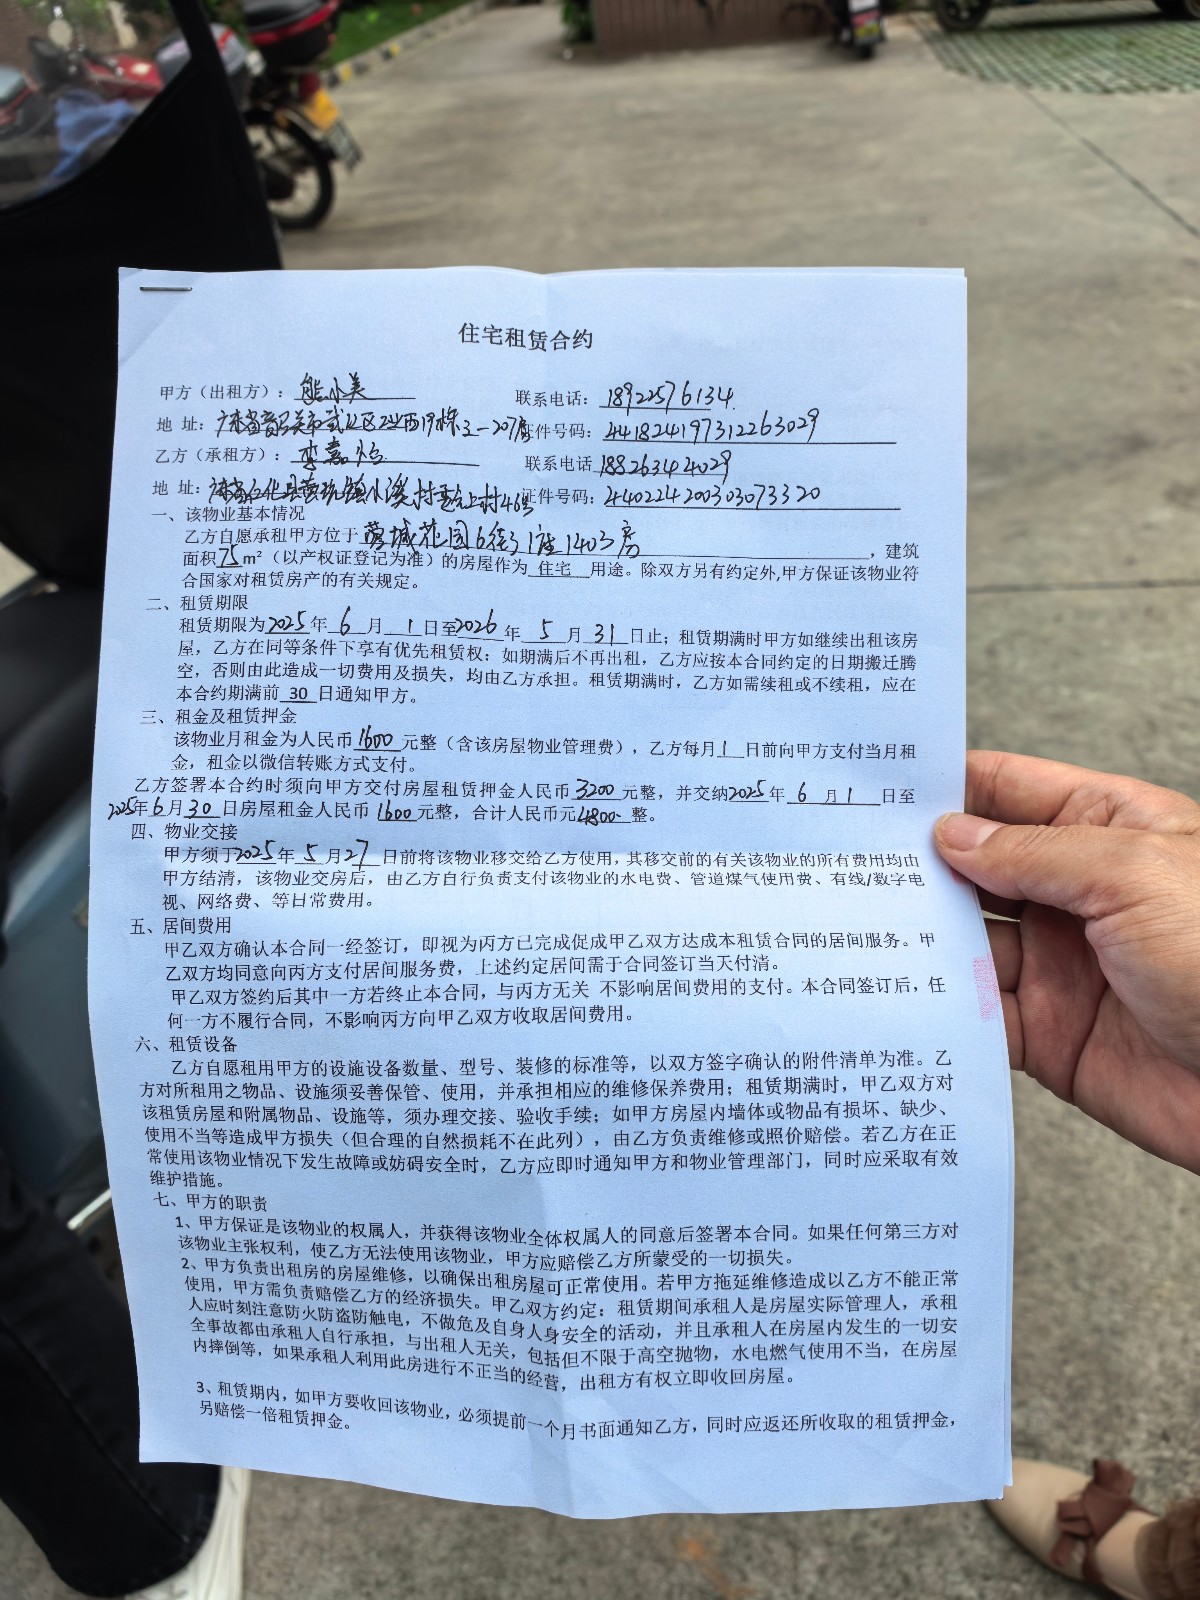 住宅租赁合约
甲方（出租方）：熊小美 联系电话：18922576134
地 址：广东省韶关市武江区 西19栋 -207房 证件号码：441824197312263029
乙方（承租方）：李嘉怡 联系电话 18826344029
地 址： 仁化县 镇小溪村 上村46号 证件号码：440224200303073320
一、该物业基本情况
乙方自愿承租甲方位于 城花园6街1座1403房，建筑
面积75m²（以产权证登记为准）的房屋作为 住宅 用途。除双方另有约定外,甲方保证该物业符
合国家对租赁房产的有关规定。
二、租赁期限
租赁期限为2025年 6 月 1 日至2026 年 5 月 31 日止；租赁期满时甲方如继续出租该房
屋，乙方在同等条件下享有优先租赁权：如期满后不再出租，乙方应按本合同约定的日期搬迁腾
空，否则由此造成一切费用及损失，均由乙方承担。租赁期满时，乙方如需续租或不续租，应在
本合约期满前 30 日通知甲方。
三、租金及租赁押金
该物业月租金为人民币 1600 元整（含该房屋物业管理费），乙方每月 1 日前向甲方支付当月租
金，租金以微信转账方式支付。
乙方签署本合约时须向甲方交付房屋租赁押金人民币 3200 元整，并交纳2025年 6 月 1 日至
2025年 6 月 30 日房屋租金人民币 1600 元整，合计人民币元4800- 整。
四、物业交接
甲方须于2025年 5 月27 日前将该物业移交给乙方使用，其移交前的有关该物业的所有费用均由
甲方结清，该物业交房后，由乙方自行负责支付该物业的水电费、管道煤气使用费、有线/数字电
视、网络费、等日常费用。
五、居间费用
甲乙双方确认本合同一经签订，即视为丙方已完成促成甲乙双方达成本租赁合同的居间服务。甲
乙双方均同意向丙方支付居间服务费，上述约定居间需于合同签订当天付清。
甲乙双方签约后其中一方若终止本合同，与丙方无关 不影响居间费用的支付。本合同签订后，任
何一方不履行合同，不影响丙方向甲乙双方收取居间费用。
六、租赁设备
乙方自愿租用甲方的设施设备数量、型号、装修的标准等，以双方签字确认的附件清单为准。乙
方对所租用之物品、设施须妥善保管、使用，并承担相应的维修保养费用；租赁期满时，甲乙双方对
该租赁房屋和附属物品、设施等，须办理交接、验收手续；如甲方房屋内墙体或物品有损坏、缺少、
使用不当等造成甲方损失（但合理的自然损耗不在此列），由乙方负责维修或照价赔偿。若乙方在正
常使用该物业情况下发生故障或妨碍安全时，乙方应即时通知甲方和物业管理部门，同时应采取有效
维护措施。
七、甲方的职责
1、甲方保证是该物业的权属人，并获得该物业全体权属人的同意后签署本合同。如果任何第三方对
该物业主张权利，使乙方无法使用该物业，甲方应赔偿乙方所蒙受的一切损失。
2、甲方负责出租房的房屋维修，以确保出租房屋可正常使用。若甲方拖延维修造成以乙方不能正常
使用，甲方需负责赔偿乙方的经济损失。甲乙双方约定：租赁期间承租人是房屋实际管理人，承租
人应时刻注意防火防盗防触电，不做危及自身人身安全的活动，并且承租人在房屋内发生的一切安
全事故都由承租人自行承担，与出租人无关，包括但不限于高空抛物，水电燃气使用不当，在房屋
内摔倒等，如果承租人利用此房进行不正当的经营，出租方有权立即收回房屋。
3、租赁期内，如甲方要收回该物业，必须提前一个月书面通知乙方，同时应返还所收取的租赁押金，
另赔偿一倍租赁押金。